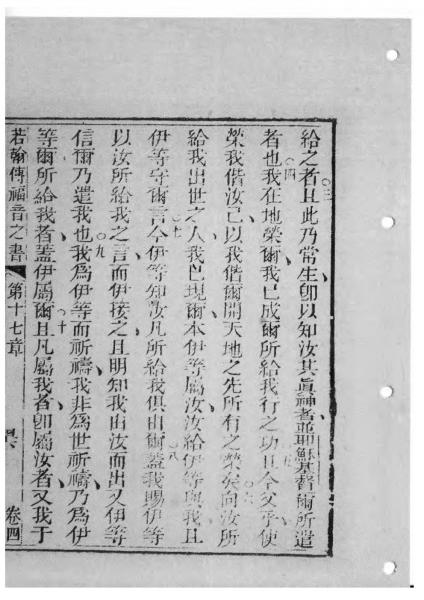 給之者且此乃常生卽以知汝其眞神者並耶穌基督爾所遣
者也我在地榮爾我已成爾所給我行之功且今父乎使
榮我偕汝己以我偕爾開天地之先所有之榮矣向汝所
給我出世之人我已現爾本伊等屬汝汝給伊等與我且
伊等守爾言今伊等知汝凡所給我俱由爾蓋我賜伊等
以汝所給我之言而伊接之且明知我由汝而出又伊等
信爾乃遣我也我爲伊等而祈禱我非爲世祈禱乃爲伊
等爾所給我者蓋伊屬爾且凡屬我者卽屬汝者又我于
若翰傳福音之書 第十七章 卷四
三
四
五
六
七
八
九
十